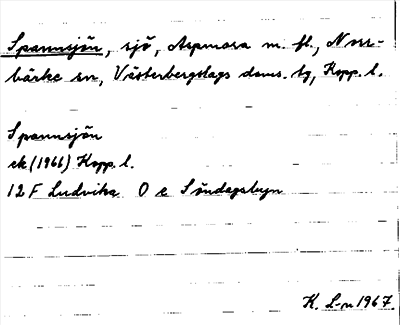 Spannsjön, sjö, Aspmora m. fl., Norr-
bärke sn, Västerbergslags doms. tg, Kopp. l.
Spannsjön
ek (1966) Kopp. l.
12 F Ludvika O e Söndagsbyn
K. L-n 1967.